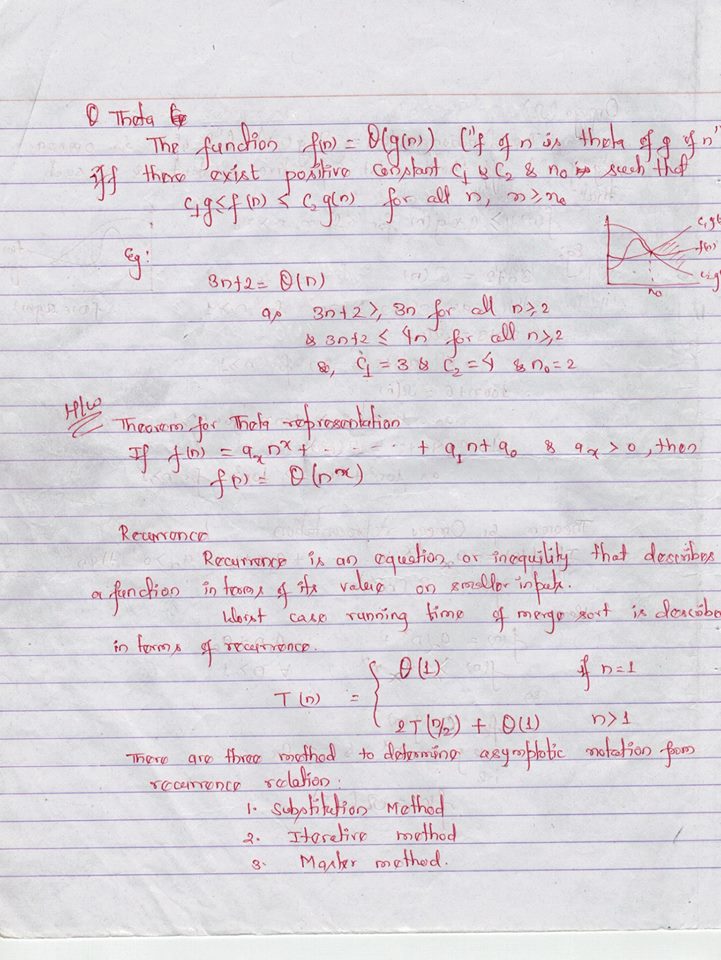 θ Theta
The function f(n) = θ(g(n)) ("f of n is theta of g of n"
iff there exist positive constant C1 & C2 & n0 such that
C1g ≤ f(n) ≤ C2 g(n) for all n, n ≥ n0
C1g(
f(n)
C2g(
n0
Eg:
3n+2 = θ(n)
as 3n+2 ≥ 3n for all n ≥ 2
& 3n+2 ≤ 4n for all n ≥ 2
&, C1 = 3 & C2 = 4 & n0 = 2
H/W
Theorem for Theta representation
If f(n) = a_x n^x + - - - - - + a1n + a0 & a_x > 0, then
f(n) = θ(n^x)
Recurrence
Recurrence is an equation or inequility that describes
a function in terms of its value on smaller inputs.
Worst case running time of merge sort is describe
in terms of recurrence.
T(n) = { θ(1) if n=1
2T(n/2) + θ(1) n>1
There are three method to determine asymptotic notation from
recurrence relation.
1. Substitution Method
2. Iterative method
3. Master method.